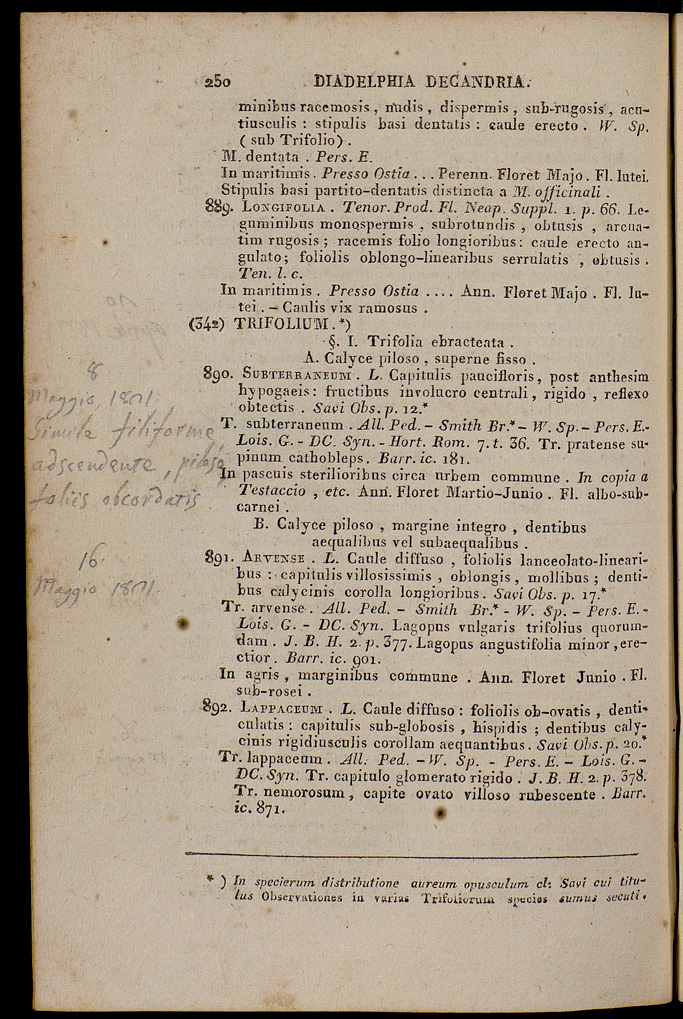 250 DIADELPHIA DECANDRIA.
minibus racemosis , nudis , dispermis , sub-rugosis , acu-
tiusculis : stipulis basi dentatis : caule erecto . W. Sp.
( sub Trifolio) .
M. dentata . Pers. E.
In maritimis . Presso Ostia . . . Perenn. Floret Majo . Fl. lutei.
Stipulis basi partito-dentatis distincta a M. officinali .
889. LONGIFOLIA . Tenor. Prod. Fl. Neap. Suppl. 1. p. 66. Le-
guminibus monospermis , subrotundis , obtusis , arcua-
tim rugosis ; racemis folio longioribus : caule erecto an-
gulato ; foliolis oblongo-linearibus serrulatis , obtusis .
Ten. l. c.
In maritimis . Presso Ostia . . . . Ann. Floret Majo . Fl. lu-
tei . – Caulis vix ramosus .
(342) TRIFOLIUM . *)
§. I. Trifolia ebracteata .
A. Calyce piloso , superne fisso .
890. SUBTERRANEUM . L. Capitulis paucifloris , post anthesim
hypogaeis : fructibus involucro centrali , rigido , reflexo
obtectis . Savi Obs. p. 12.*
T. subterraneum . All. Ped. – Smith Br.* – W. Sp. – Pers. E. –
Lois. G. - DC. Syn. - Hort. Rom. 7. t. 36. Tr. pratense su-
pinum cathobleps . Barr. ic. 181.
In pascuis sterilioribus circa urbem commune . In copia a
Testaccio , etc. Ann. Floret Martio-Junio . Fl. albo-sub-
carnei .
B. Calyce piloso , margine integro , dentibus
aequalibus vel subaequalibus .
891. ARVENSE . L. Caule diffuso , foliolis lanceolato-lineari-
bus : capitulis villosissimis , oblongis , mollibus ; denti-
bus calycinis corolla longioribus . Savi Obs. p. 17.*
Tr. arvense . All. Ped. – Smith Br.* - W. Sp. – Pers. E. -
Lois. G. – DC. Syn. Lagopus vulgaris trifolius quorum-
dam . J. B. H. 2. p. 377. Lagopus angustifolia minor , ere-
ctior . Barr. ic. 901.
In agris , marginibus commune . Ann. Floret Junio . Fl.
sub-rosei .
892. LAPPACEUM . L. Caule diffuso : foliolis ob-ovatis , denti-
culatis : capitulis sub-globosis , hispidis ; dentibus caly-
cinis rigidiusculis corollam aequantibus . Savi Obs. p. 20.*
Tr. lappaceum . All. Ped. – W. Sp. - Pers. E. – Lois. G. –
DC. Syn. Tr. capitulo glomerato rigido . J. B. H. 2. p. 378.
Tr. nemorosum , capite ovato villoso rubescente . Barr.
ic. 871.
* ) In specierum distributione aureum opusculum cl: Savi cui titu-
lus Observationes in varias Trifoliorum species sumus secuti .
8
Maggio, 1801.
Simile filiforme
adscendente , piloso
foliis obcordatis
16.
Maggio 1801.